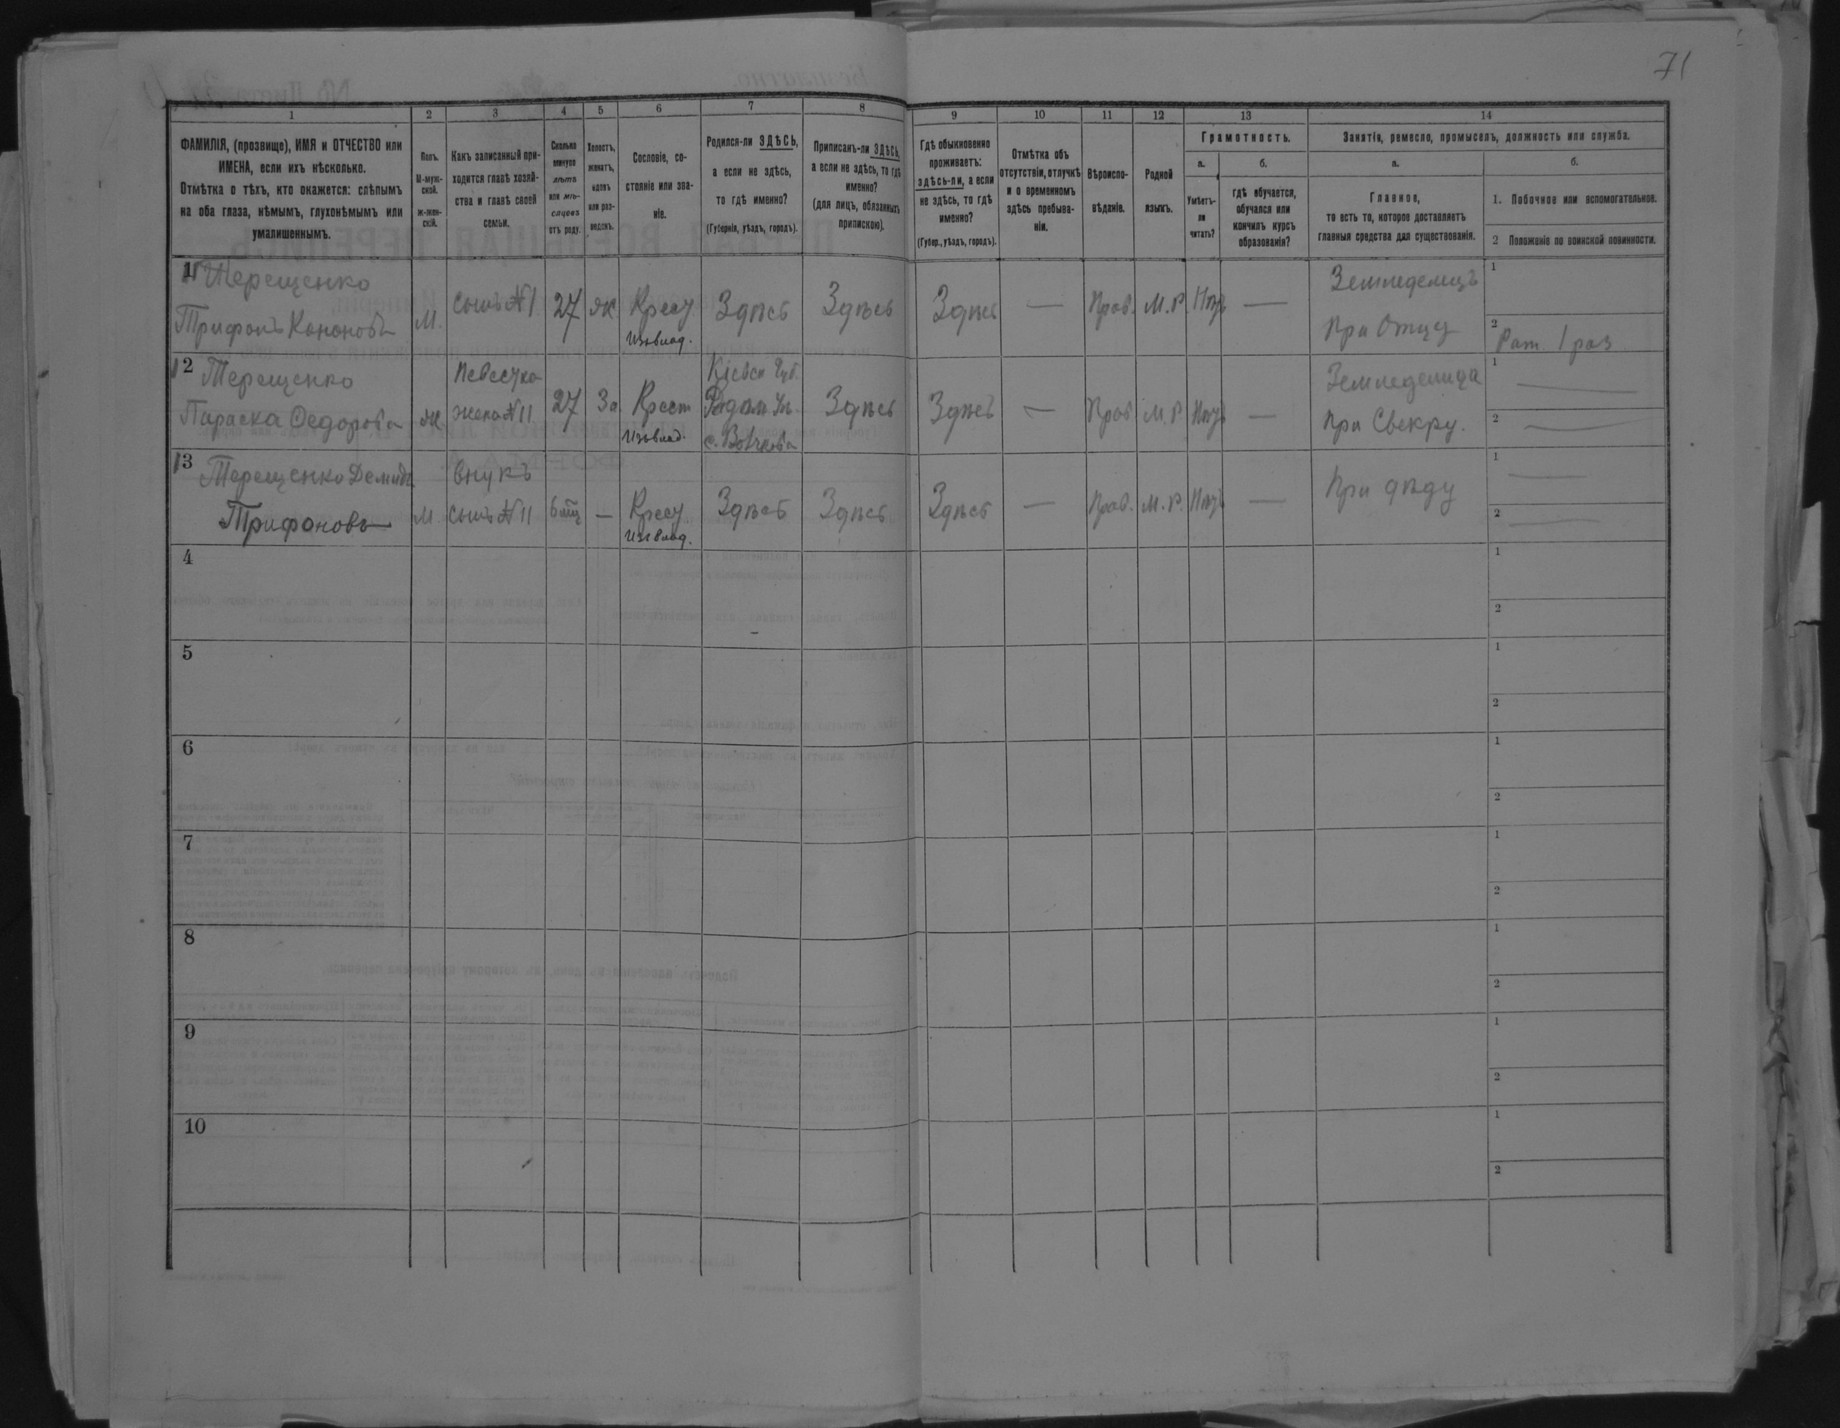 71
1 2 3 4 5 6 7 8 9 10 11 12 13 14
ФАМИЛІЯ, (прозвище), ИМЯ и ОТЧЕСТВО или
ИМЕНА, если ихъ нѣсколько.
Отмѣтка о тѣхъ, кто окажется: слѣпымъ
на оба глаза, нѣмымъ, глухонѣмымъ или
умалишеннымъ.
Полъ.
М-муж-
ской.
ж-жен-
скій.
Какъ записанный при-
ходится главѣ хозяй-
ства и главѣ своей
семьи.
Сколько
минуло
лѣтъ
или мѣ-
сяцевъ
отъ роду.
Холостъ,
женатъ,
вдовъ
или раз-
веденъ.
Сословіе, со-
стояніе или зва-
ніе.
Родился-ли ЗДѢСЬ,
а если не здѣсь,
то гдѣ именно?
(Губернія, уѣздъ, городъ).
Приписанъ-ли ЗДѢСЬ,
а если не здѣсь, то гдѣ
именно?
(для лицъ, обязанныхъ
припискою).
Гдѣ обыкновенно
проживаетъ:
здѣсь-ли, а если
не здѣсь, то гдѣ
именно?
(Губер., уѣздъ, городъ).
Отмѣтка объ
отсутствіи, отлучкѣ
и о временномъ
здѣсь пребыва-
ніи.
Вѣроиспо-
вѣданіе.
Родной
языкъ.
Грамотность.
а.
Умѣетъ-
ли
читать?
б.
гдѣ обучается,
обучался или
кончилъ курсъ
образованія?
Занятія, ремесло, промыселъ, должность или служба.
а.
Главное,
то есть то, которое доставляетъ
главныя средства для существованія.
б.
1. Побочное или вспомогательное.
2 Положеніе по воинской повинности.
11 Терещенко
Трифонъ Кононовъ
М.
сынъ №1
27
Ж
Крест
Изъ влад.
Здѣсь
Здѣсь
Здѣсь
—
Прав.
М.Р.
Нѣтъ
—
Земледелецъ
при Отцѣ
1
2
Рат. 1 раз
12 Терещенко
Параска Федорова
Ж
Невестка
жена №11
27
За
Крест
Изъ влад.
Кіевск Губ.
Радом. Уѣ.
Здѣсь
Здѣсь
—
Прав
М.Р.
Нѣтъ
—
Земледелица
при Свекру.
1 —
2 —
13 Терещенко Демидъ
Трифоновъ
М
Внукъ
сынъ №11
6 мц
—
Крест
Изъ влад.
Здѣсь
Здѣсь
Здѣсь
—
Прав.
М.Р.
Нѣтъ
—
При дѣду
1 —
2 —
4
1
2
5
1
2
6
1
2
7
1
2
8
1
2
9
1
2
10
1
2